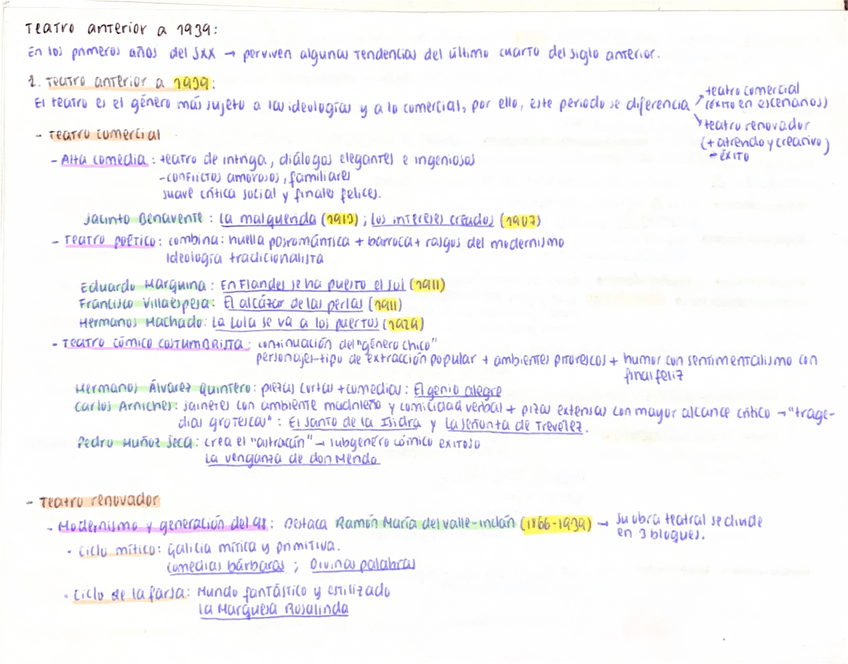 Teatro anterior a 1939:
En los primeros años del SXX → perviven algunas tendencias del último cuarto del siglo anterior.
1. Teatro anterior a 1939:
El teatro es el género más sujeto a las ideologías y a lo comercial, por ello, este periodo se diferencia
teatro comercial
(éxito en escenarios)
teatro renovador
(+ atrevido y creativo)
- éxito
- Teatro comercial
- Alta comedia: teatro de intriga, diálogos elegantes e ingeniosos
- conflictos amorosos, familiares
suave crítica social y finales felices.
Jacinto Benavente: La malquerida (1913); Los intereses creados (1907)
- Teatro poético: combina: huella posromántica + barroca + rasgos del modernismo
ideología tradicionalista
Eduardo Marquina: En Flandes se ha puesto el sol (1911)
Francisco Villaespesa: El alcázar de las perlas (1911)
Hermanos Machado: La Lola se va a los puertos (1929)
- Teatro cómico costumbrista: continuación del "género chico"
personajes-tipo de extracción popular + ambientes pitorescos + humor con sentimentalismo con
final feliz
Hermanos Álvarez Quintero: piezas cortas + comedias: El genio alegre
Carlos Arniches: sainetes con ambiente madrileño y comicidad verbal + pizas extensas con mayor alcance crítico → "trage-
dias grotescas": El santo de la Isidra y La señorita de Trevelez.
Pedro Muñoz Seca: crea el "astracán" → subgénero cómico exitoso
La venganza de don Mendo
- Teatro renovador
- Modernismo y generación del 98: Destaca Ramón María del valle-inclán (1866-1939) → su obra teatral se divide
en 3 bloques.
· Ciclo mítico: Galicia mítica y primitiva.
Comedias bárbaras; Divinas palabras
· Ciclo de la farsa: Mundo fantástico y estilizado
La Marquesa Rosalinda